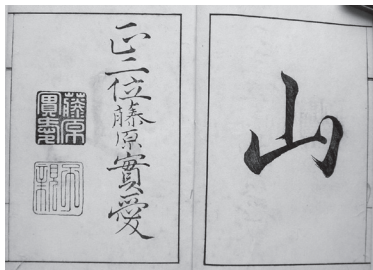 山
正二位藤原實愛
藤原
實愛